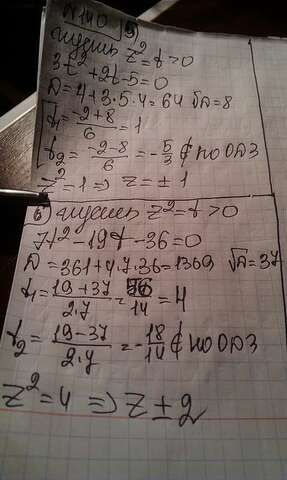 N140 5)
пусть z²=t>0
3t²+2t-5=0
D=4+3·5·4=64 √D=8
t₁=(-2+8)/6=1
t₂=(-2-8)/6=-5/3 ∉ по ОДЗ
z²=1 => z=±1
6) пусть z²=t>0
7t²-19t-36=0
D=361+4·7·36=1369 √D=37
t₁=(19+37)/(2·7)=56/14=4
t₂=(19-37)/(2·7)=-18/14 ∉ по ОДЗ
z²=4 => z±2